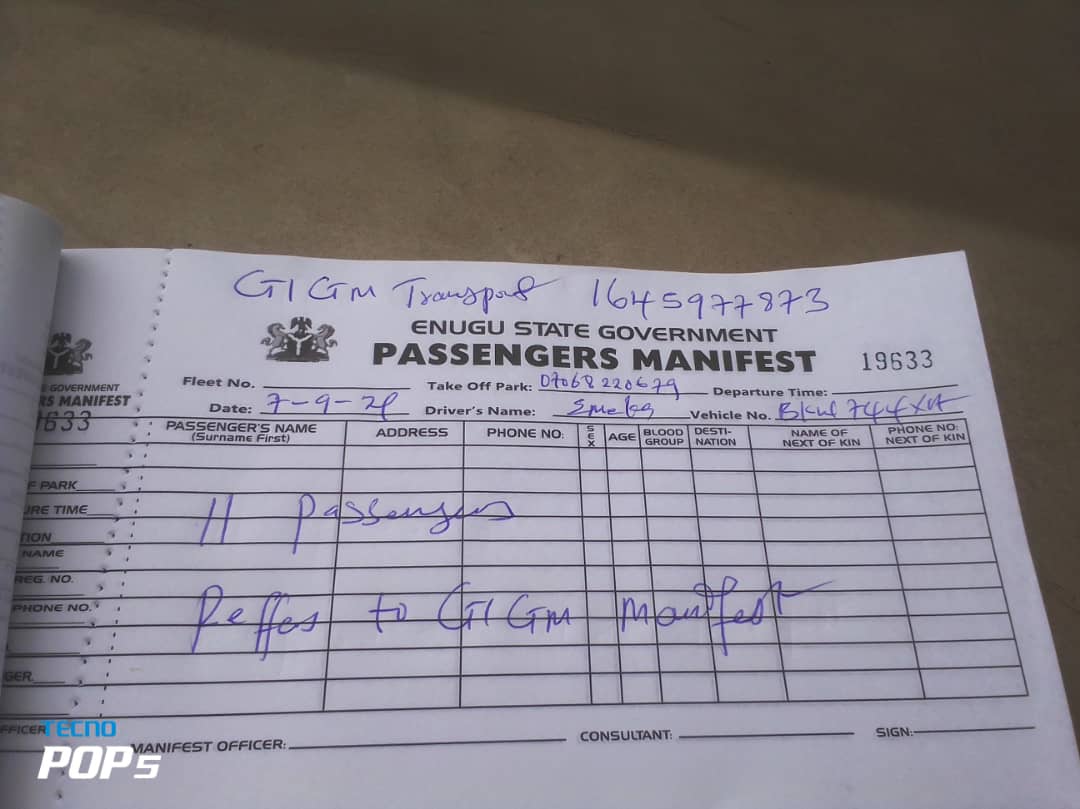 GIGM Transport 1645977873
ENUGU STATE GOVERNMENT
PASSENGERS MANIFEST
19633
Fleet No. Take Off Park: 07068220679 Departure Time:
Date: 7-9-24 Driver's Name: Emeka Vehicle No.
PASSENGER'S NAME (Surname First) ADDRESS PHONE NO: SEX AGE BLOOD GROUP DESTI-NATION NAME OF NEXT OF KIN PHONE NO: NEXT OF KIN
11 Passengers
Reffes to GIGM manifest
MANIFEST OFFICER: CONSULTANT: SIGN:
GOVERNMENT
RS MANIFEST
9633
F PARK
URE TIME
TION
NAME
REG. NO.
PHONE NO.
GER.
FFICER
TECNO
POP5